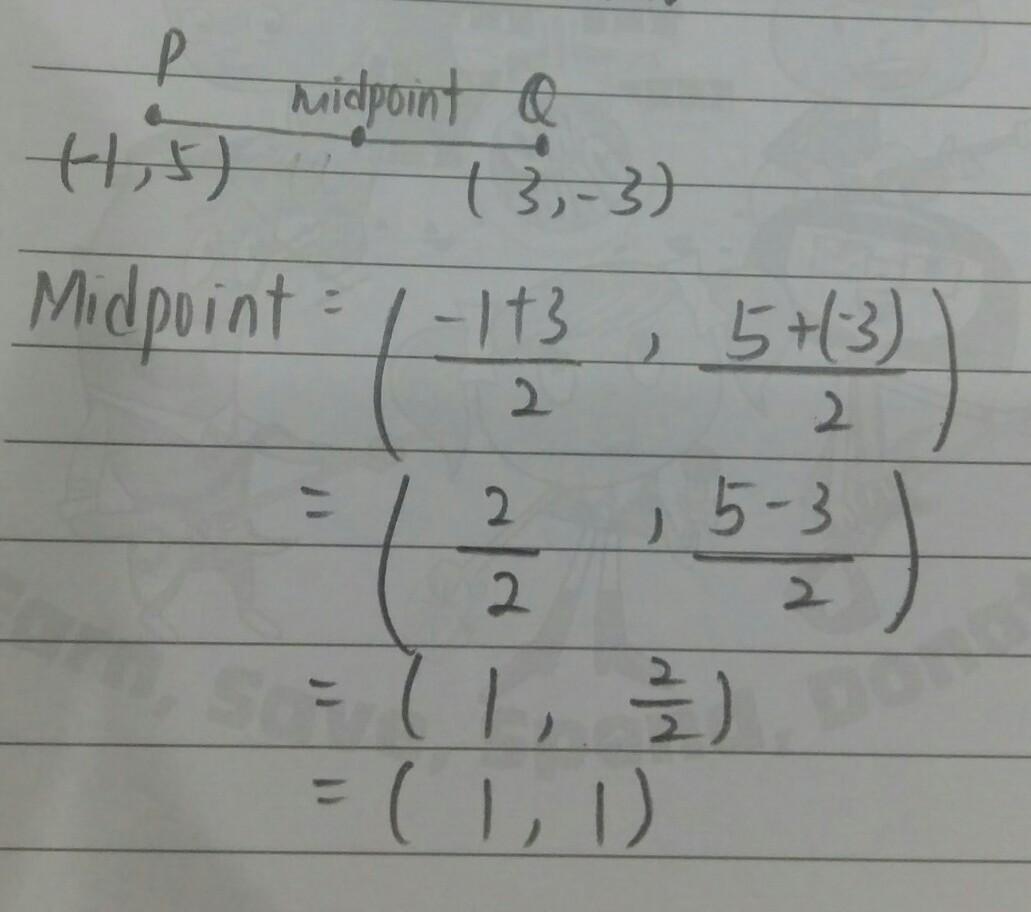 P
midpoint Q
(-1,5) (3,-3)
Midpoint = ( -1+3 / 2 , 5+(-3) / 2 )
= ( 2 / 2 , 5-3 / 2 )
= ( 1, 2/2 )
= ( 1, 1 )